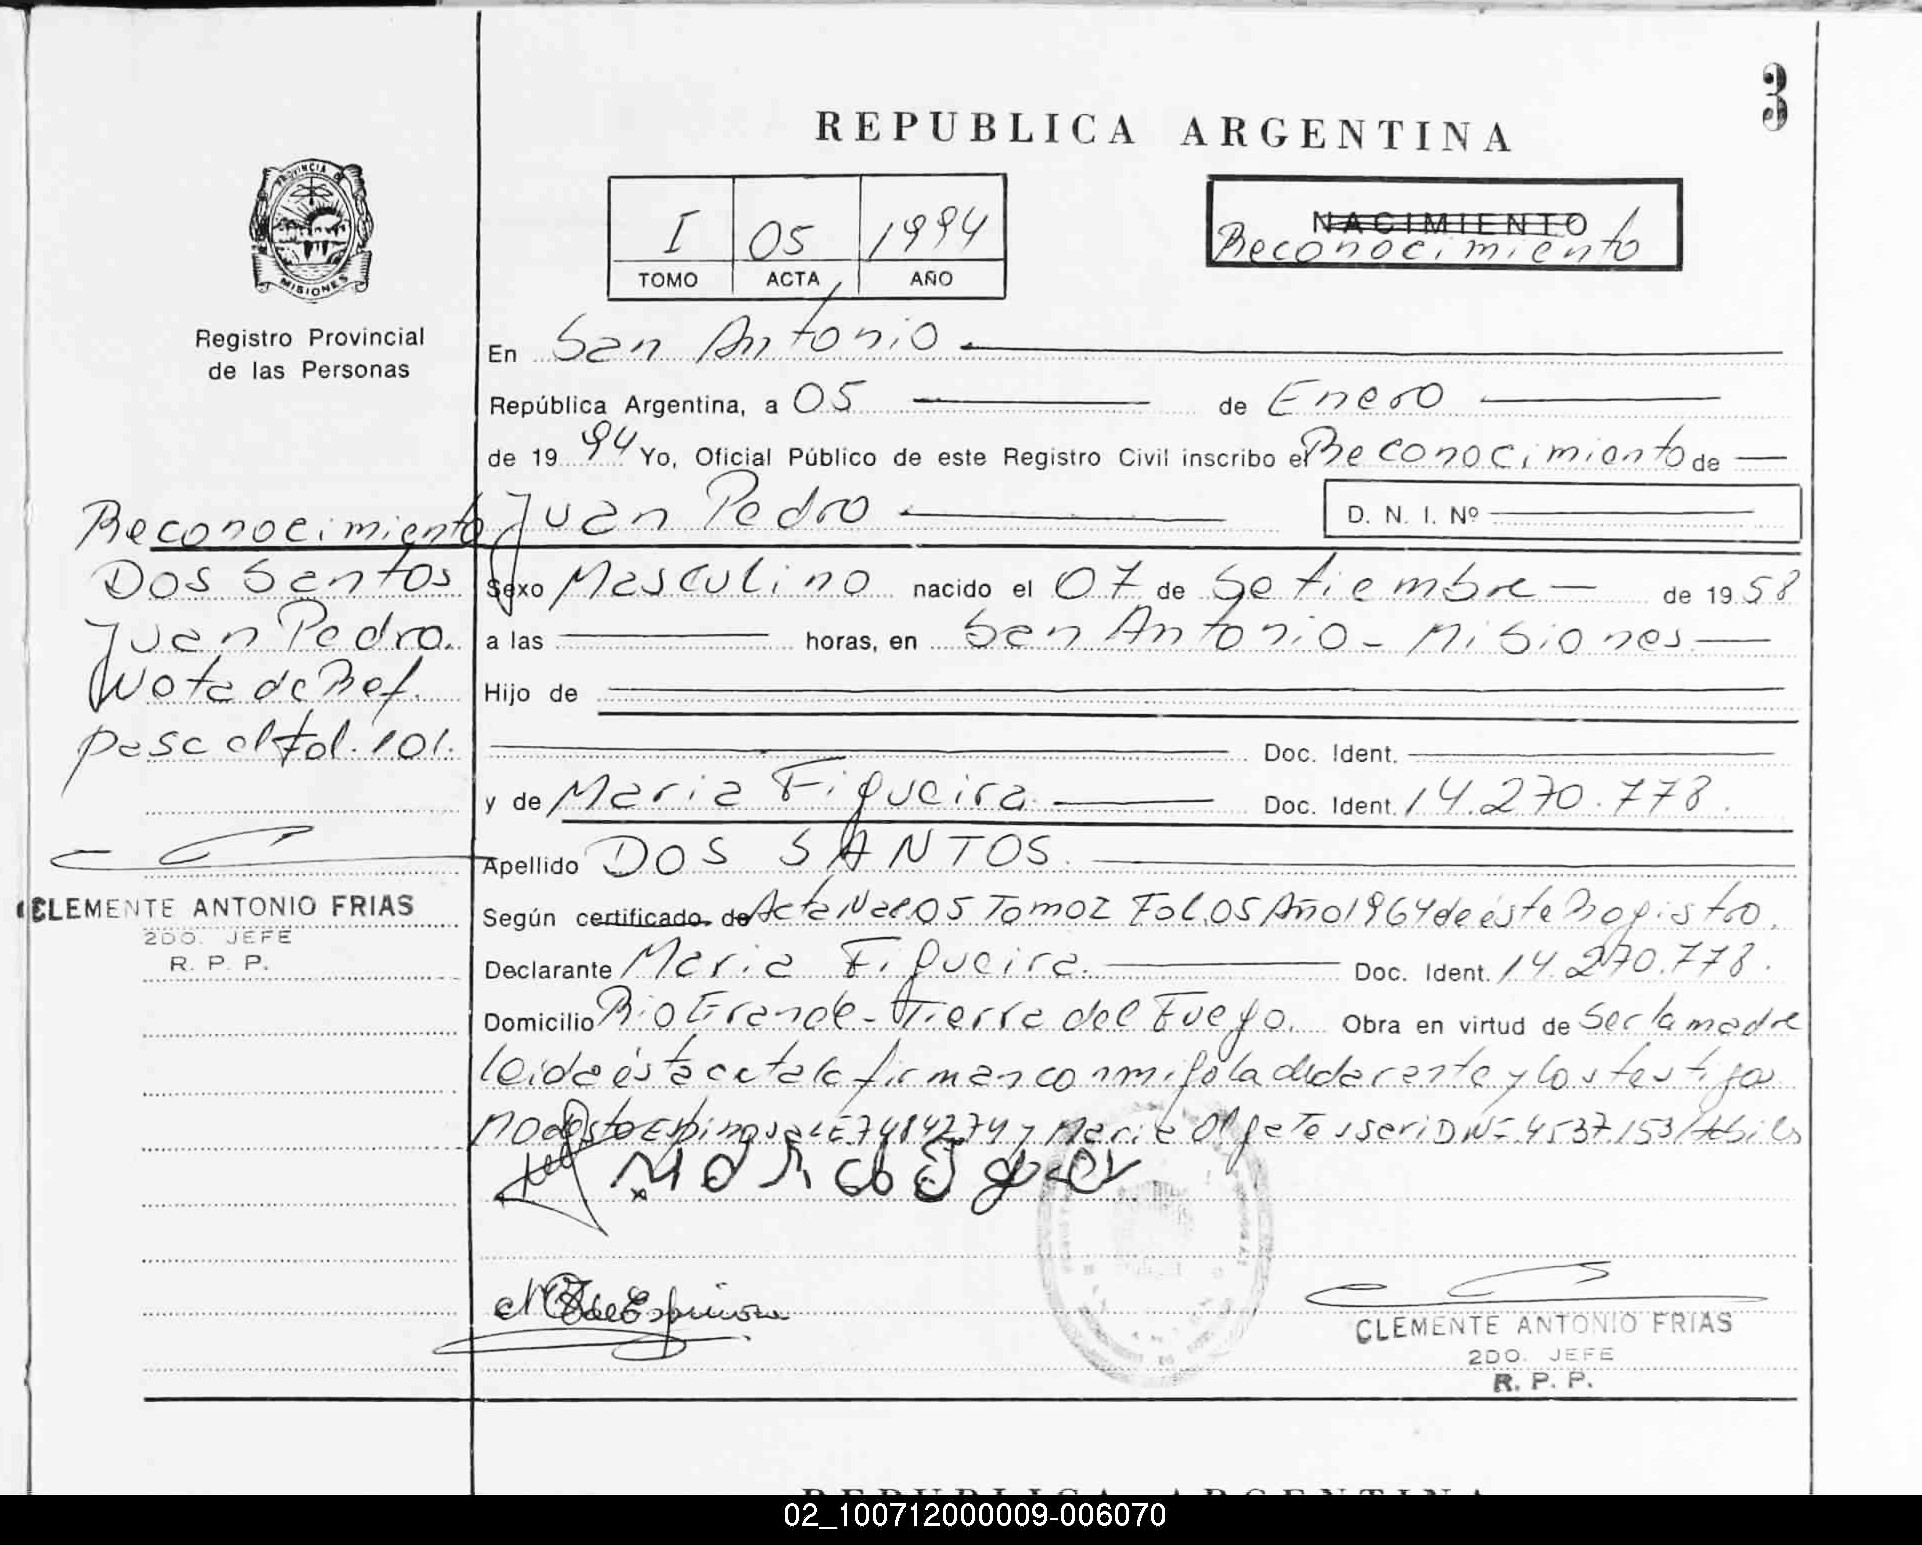 3
REPUBLICA ARGENTINA
PROVINCIA DE
MISIONES
Registro Provincial
de las Personas
I 05 1994
TOMO ACTA AÑO
NACIMIENTO
Reconocimiento
En San Antonio
República Argentina, a 05 de Enero
de 1994 Yo, Oficial Público de este Registro Civil inscribo el Reconocimiento de
Juan Pedro D. N. I. Nº
Sexo Masculino nacido el 07 de Setiembre de 1958
a las horas, en San Antonio - Misiones
Hijo de
Doc. Ident.
y de Maria Figueira Doc. Ident. 14.270.778.
Apellido DOS SANTOS.
Según certificado de Acta Nac. 05 Tomo Fol. 05 Año 1964 de éste Registro.
Declarante Maria Figueira. Doc. Ident. 14.270.778.
Domicilio Rio Grande - Tierra del Fuego. Obra en virtud de Ser la madre
leida ésta acta la firman conmigo la declarante y los testigos
Espinosa LE 7484274 y Maria Olga DNI 4537153
Reconocimiento
Dos Santos
Juan Pedro.
Nota de Ref.
pasa al fol. 101.
CLEMENTE ANTONIO FRIAS
2DO. JEFE
R. P. P.
de Espinosa
CLEMENTE ANTONIO FRIAS
2DO. JEFE
R. P. P.
REPUBLICA ARGENTINA
02_100712000009-006070